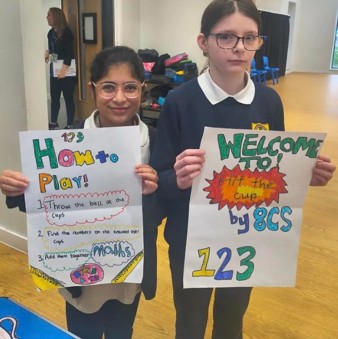 123
How to
Play!
1. Throw the ball at the
cups
2. Find the numbers on the knocked over
cups
3. Add them together
Maths
WELCOME
TO!
Hit the
cup
by 8CS
123